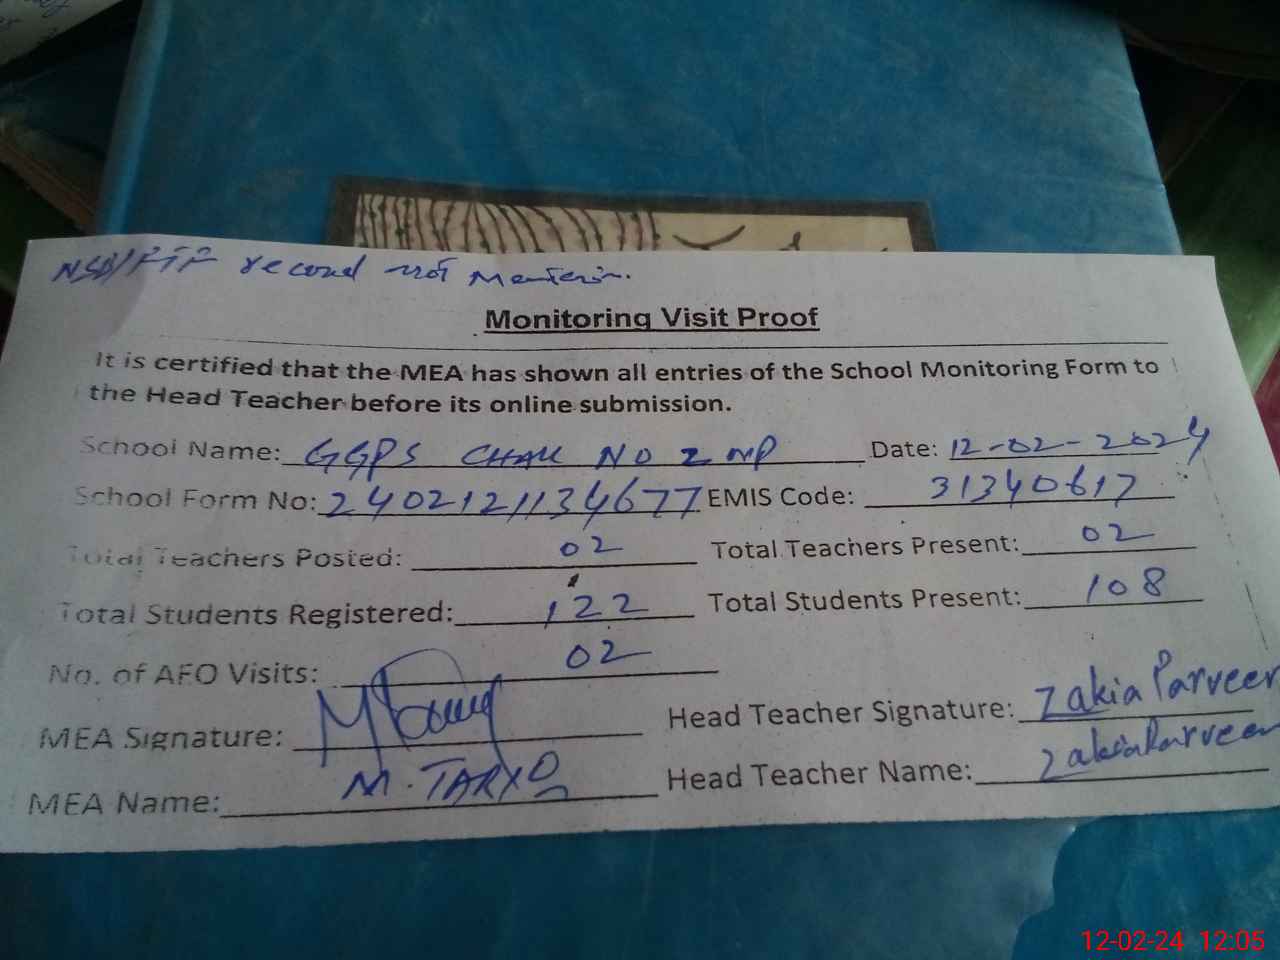 NSB/FTF record not Mentain.
Monitoring Visit Proof
It is certified that the MEA has shown all entries of the School Monitoring Form to
the Head Teacher before its online submission.
School Name: GGPS CHAK NO 2 MP Date: 12-02-2024
School Form No: 24021211134677 EMIS Code: 31340617
Total Teachers Posted: 02 Total Teachers Present: 02
Total Students Registered: 122 Total Students Present: 108
No. of AEO Visits: 02
MEA Signature: Head Teacher Signature: Zakia Parveen
MEA Name: M. TARIQ Head Teacher Name: Zakia Parveen
12-02-24 12:05